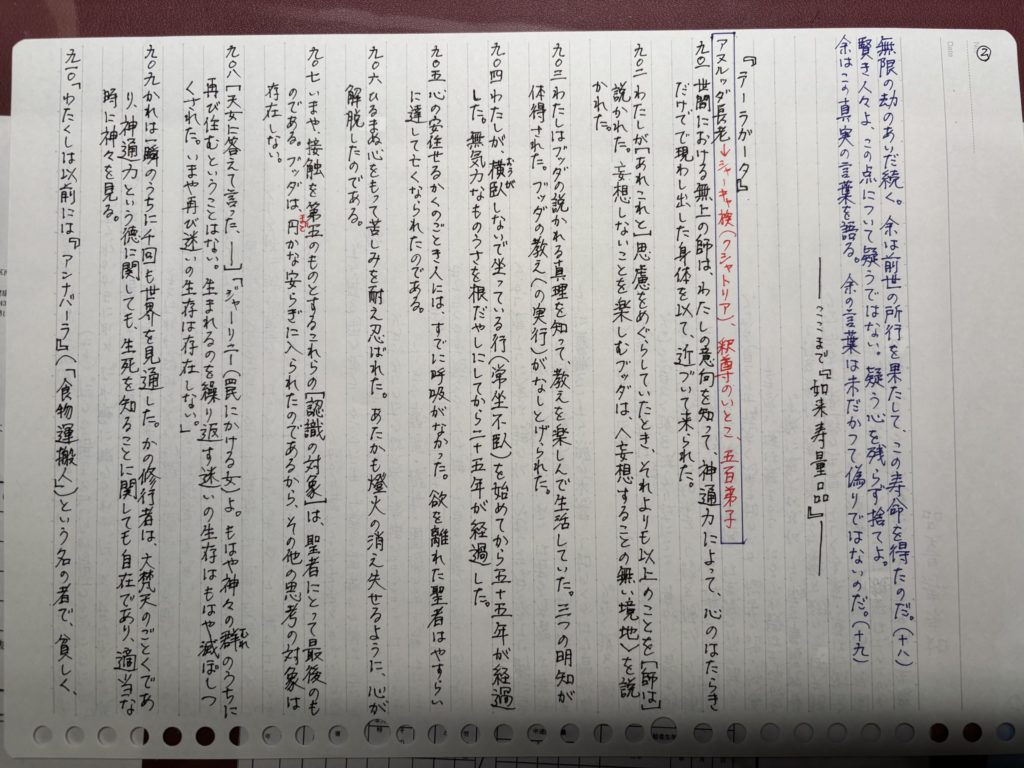 ②
無限の劫のあいだ続く。余は前世の所行を果たして、この寿命を得たのだ。(十八)
賢き人々よ、この点について疑うではない。疑う心を残らず捨てよ。
余はこの真実の言葉を語る。余の言葉は未だかつて偽りではないのだ。(十九)
――ここまで『如来寿量品』――
『テーラガータ』
アヌルッダ長老→シャーキャ族(クシャトリア)、釈尊のいとこ、五百弟子
九〇一 世間における無上の師は、わたしの意向を知って、神通力によって、心のはたらき
だけでで現わし出した身体を以て、近づいて来られた。
九〇二 わたしが[あれこれと]思慮をめぐらしていたとき、それよりも以上のことを[師は]
説かれた。妄想しないことを楽しむブッダは、〈妄想することの無い境地〉を説
かれた。
九〇三 わたしはブッダの説かれる真理を知って、教えを楽しんで生活していた。三つの明知が
体得された。ブッダの教え(への実行)がなしとげられた。
九〇四 わたしが、横臥しないで坐っている行(常坐不臥)を始めてから五十五年が経過
おうが
した。無気力なものうさを根だやしにしてから二十五年が経過した。
九〇五 心の安住せるかくのごとき人には、すでに呼吸がなかった。欲を離れた聖者はやすらい
に達して亡くなられたのである。
九〇六 ひるまぬ心をもって苦しみを耐え忍ばれた。あたかも燈火の消え失せるように、心が
解脱したのである。
九〇七 いまや、接触を第五のものとするこれらの[認識の対象]は、聖者にとって最後のも
のである。ブッダは、円かな安らぎに入られたのであるから、その他の思考の対象は
まど
存在しない。
九〇八[天女に答えて言った、――]「ジャーリニー(罠にかける女)よ。もはや神々の群のうちに
むれ
再び住むということはない。生まれるのを繰り返す迷いの生存はもはや滅ぼしつ
くされた。いまや再び迷いの生存は存在しない。」
九〇九 かれは一瞬のうちに千回も世界を見通した。かの修行者は、大梵天のごとくであ
り、神通力という徳に関しても、生死を知ることに関しても自在であり、適当な
時に神々を見る。
九一〇「わたくしは以前には『アンナバーラ』(「食物運搬人」)という名の者で、貧しく、